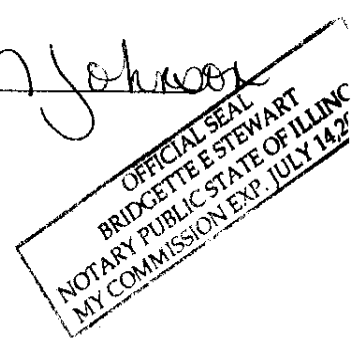 Johnson
OFFICIAL SEAL
BRIDGETTE E STEWART
NOTARY PUBLIC STATE OF ILLINO
MY COMMISSION EXP. JULY 14,20